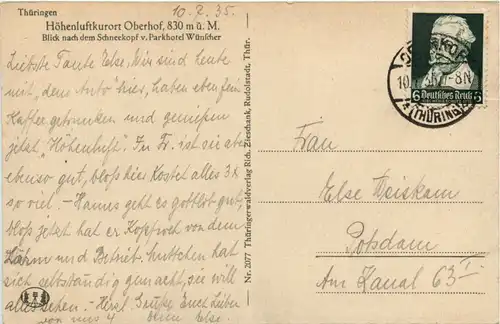 Thüringen
10.7.35.
Höhenluftkurort Oberhof, 830 m ü. M.
Blick nach dem Schneekopf v. Parkhotel Wünscher
Liebste Tante Else, Wir sind heute
mit "dem Auto" hier, haben eben fein
Kaffee getrunken und genießen
jetzt "Höhenluft". In Fr. ist sie aber
ebenso gut, bloß hier kostet alles 3x
so viel. – Hannes geht es gottlob gut,
bloß jetzt hat er Kopfweh von dem
Lärm und Betrieb. Muttchen hat
sich selbständig gemacht, sie will
alles sehen. – Herzl. Grüße Euch Lieben
von uns 4 Else.
Nr. 2077 Thüringerwaldverlag Rich. Zieschank, Rudolstadt, Thür.
6 Deutsches Reich 6
10.
-8N
(THÜRING
Frau
Else
Potsdam
Am Kanal 63 I